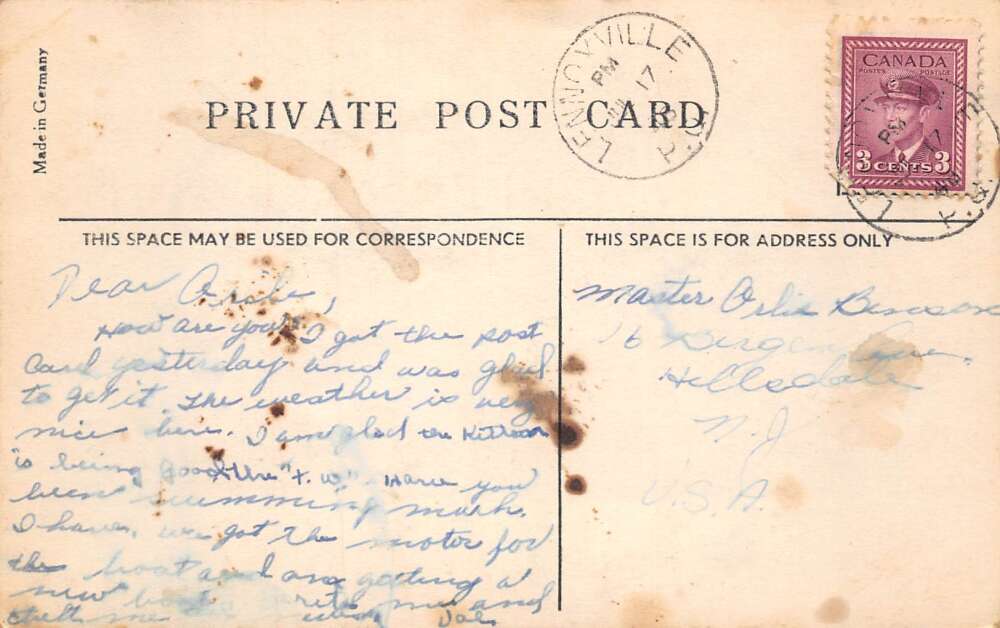 Made in Germany
PRIVATE POST CARD
LENNOXVILLE
PM
17
P.Q.
CANADA
POSTES POSTAGE
3 CENTS 3
PM
17
THIS SPACE MAY BE USED FOR CORRESPONDENCE
Dear
How are you? I got the post
card yesterday and was glad
to get it. The weather is very
nice here. I am glad the
is being good
been swimming much.
I have. we got the motor for
the boat and are getting a
new boat. write me and
tell me the news. Val
THIS SPACE IS FOR ADDRESS ONLY
Master
16 Bergen
Hillsdale
N.J
U.S.A.